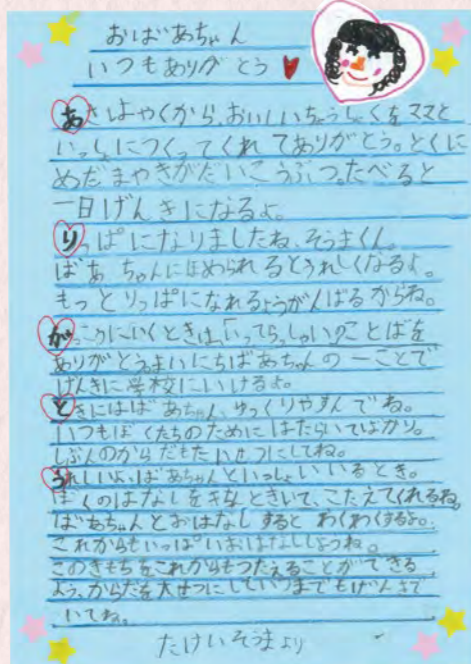 おばあちゃん
いつもありがとう
あさはやくから、おいしいちょうしょくをママと
いっしょにつくってくれてありがとう。とくに
めだまやきがだいこうぶつ。たべると
一日げんきになるよ。
りっぱになりましたね、そうまくん。
ばあちゃんにほめられるとうれしくなるよ。
もっとりっぱになれるようがんばるからね。
がっこうにいくときは、「いってらっしゃい」のことばを
ありがとう。まいにちばあちゃんの一ことで
げんきに学校にいけるよ。
ときにはばあちゃん、ゆっくりやすんでね。
いつもぼくたちのためにはたらいてばかり。
じぶんのからだもたいせつにしてね。
うれしいよ、ばあちゃんといっしょにいるとき。
ぼくのはなしを きいて、こたえてくれるね。
ばあちゃんとおはなしするとわくわくするよ。
これからもいっぱいおはなししようね。
このきもちをこれからもつたえることができる
よう、からだを大せつにしていつまでもげんきで
いてね。
たけいそうまより